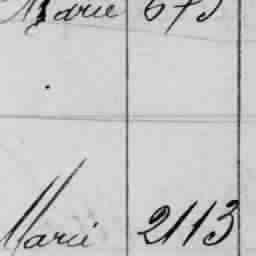 Marie 675
Marie 2113